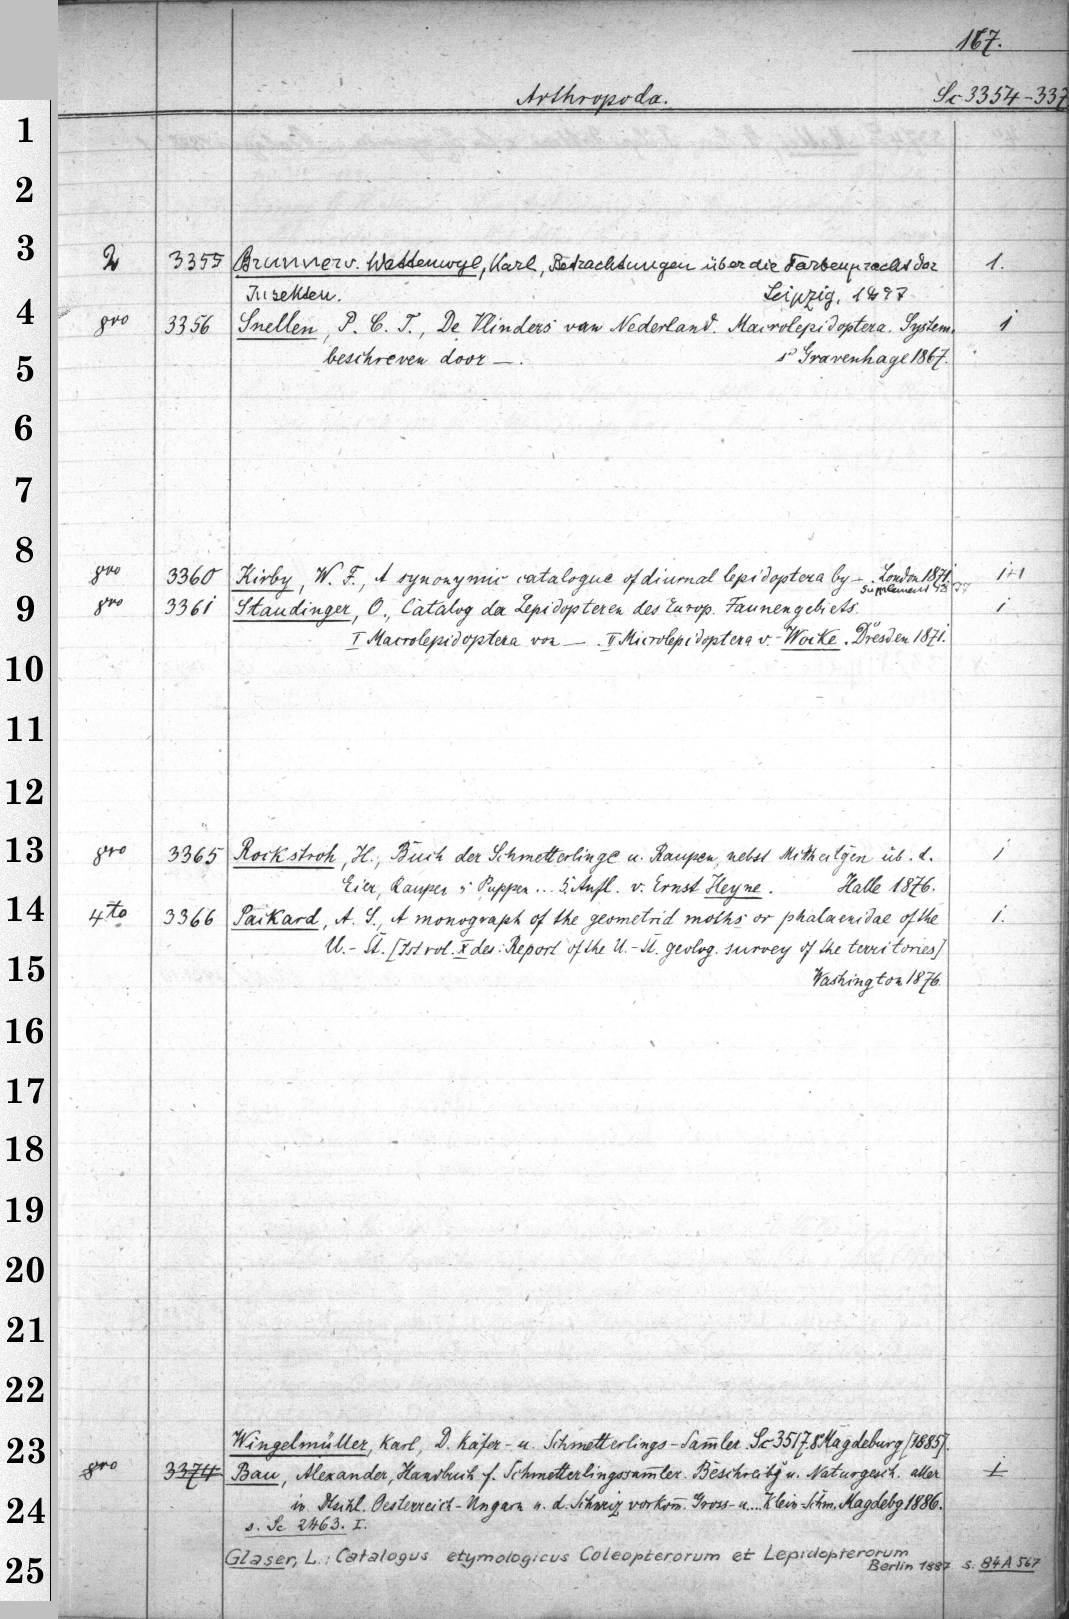 167.
Arthropoda. Sc 3354-337
1
2
3 2 3355 Brunner v. Wattenwyl, Karl, Betrachtungen über die Farbenpracht der 1.
Insekten. Leipzig, 1897
4 8vo 3356 Snellen, P. C. T., De Vlinders van Nederland. Macrolepidoptera. System. 1
5 beschreven door —. s' Gravenhage 1867.
6
7
8 8vo 3360 Kirby, W. F., A synonymic catalogue of diurnal lepidoptera by —. London 1871. 1+1
Supplement
9 8vo 3361 Staudinger, O., Catalog der Lepidopteren des Europ. Faunengebiets. 1
I Macrolepidoptera von —. II Microlepidoptera v. Wocke. Dresden 1871.
10
11
12
13 8vo 3365 Rockstroh, H., Buch der Schmetterlinge u. Raupen, nebst Mittheilgen üb. d. 1
Eier, Raupen u Puppen ... 5. Aufl. v. Ernst Heyne. Halle 1876.
14 4to 3366 Packard, A. S., A monograph of the geometrid moths or phalaenidae of the 1.
15 U.-St. [Ist vol. X des: Report of the U.-St. geolog. survey of the territories]
Washington 1876.
16
17
18
19
20
21
22
23 Wingelmüller, Karl, D. Käfer- u. Schmetterlings-Sammler. Sc 3517.8° Magdeburg [1885].
8vo 3374 Bau, Alexander, Handbuch f. Schmetterlingssammler. Beschreibg u. Naturgesch. aller 1
24 in Deutschl. Oesterreich-Ungarn u. d. Schweiz vorkom. Gross- u... Klein-Schm. Magdebg 1886.
s. Sc 2463. I.
25 Glaser, L.: Catalogus etymologicus Coleopterorum et Lepidopterorum
Berlin 1887 s. 84 A 567